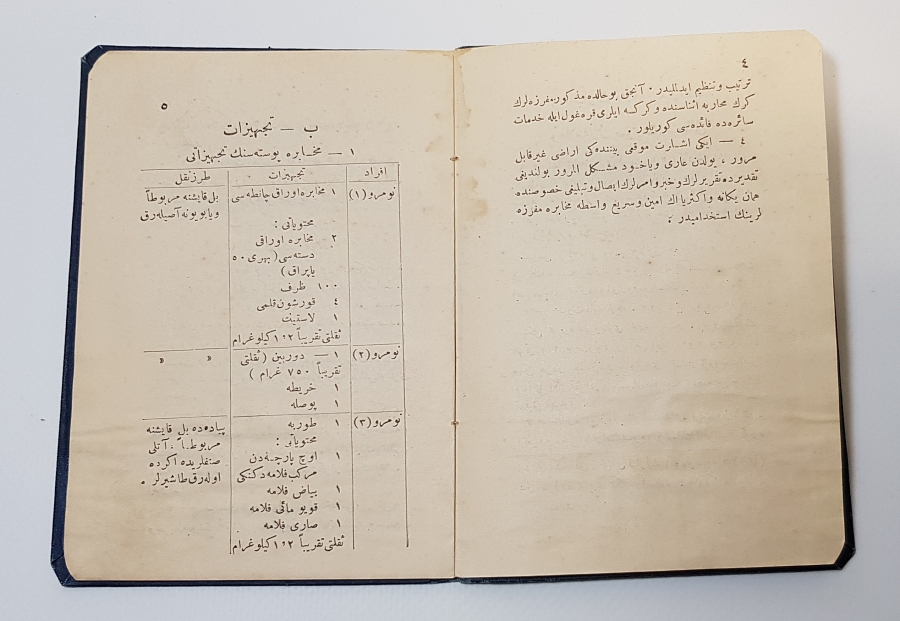 ٤
ترتيب وتنظيم ايدلمليدر . آنجق بوحالده مذكور مفرزه لرك
كرك محاربه اثناسنده وكركسه ايلرى قره غول ايله خدمات
سائره ده فائده سى كوريلور .
٤ — ايكى اشارت موقعى بيننده كى اراضى غيرقابل
مرور ، يولدن عارى وياخود مشكل المرور بولنديغى
تقديرده تقريرلرك وخبر وامرلرك ايصال وتبليغى خصوصنده
همان يكانه واكثريا اك امين وسريع واسطه مخابره مفرزه
لرينك استخداميدر .
٥
ب — تجهيزات
١ — مخابره پوسته سنك تجهيزاتى
افراد تجهيزات طرز نقل
نومرو (١) ١ مخابره اوراق چانطه سى بل قايشنه مربوطاً
ويا بويونه آصيله رق
محتوياتى :
٢ مخابره اوراقى
دسته سى ( بهرى ٥٠
ياپراق )
١٠٠ ظرف
٤ قورشون قلمى
١ لاستيك
ثقلتى تقريباً ١،٢ كيلوغرام
نومرو (٢) ١ — دوربين ( ثقلتى » »
تقريباً ٧٥٠ غرام )
١ خريطه
١ پوصله
نومرو (٣) ١ طوربه پياده ده بل قايشنه
محتوياتى : مربوطاً . آتلى
١ اوچ پارچه دن صنفلريده اكرده
مركب فلامه دكنكى اوله رق طاشيرلر .
١ بياض فلامه
١ قويو مائى فلامه
١ صارى فلامه
ثقلتى تقريباً ١،٢ كيلوغرام